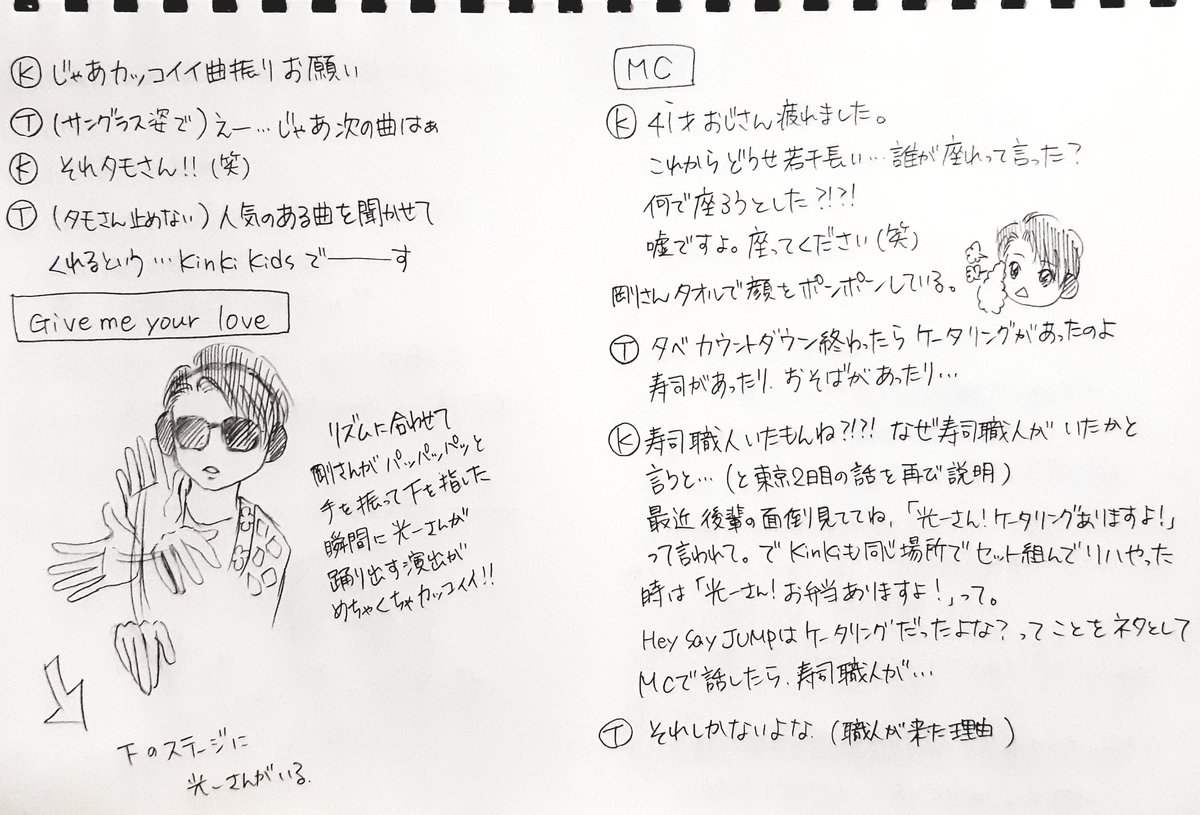 Ⓚ じゃあカッコイイ曲振りお願い
Ⓣ (サングラス姿で)えー…じゃあ次の曲はぁ
Ⓚ それタモさん!!(笑)
Ⓣ (タモさん止めない)人気のある曲を聞かせて
くれるという…KinKi Kidsで――す
Give me your love
リズムに合わせて
剛さんがパッパッパッと
手を振って下を指した
瞬間に光一さんが
踊り出す演出が
めちゃくちゃカッコイイ!!
下のステージに
光一さんがいる.
MC
Ⓚ 41才おじさん疲れました。
これからどうせ若干長い…誰が座れって言った?
何で座ろうとした?!?!
嘘ですよ。座ってください(笑)
剛さんタオルで顔をポンポーンしている。
Ⓣ 夕べカウントダウン終わったらケータリングがあったのよ
寿司があったり、おそばがあったり…
Ⓚ 寿司職人いたもんね?!?! なぜ寿司職人がいたかと
言うと…(と東京2日目の話を再び説明)
最近後輩の面倒見ててね,「光一さん!ケータリングありますよ!」
って言われて。でKinKiも同じ場所でセット組んでリハやった
時は「光一さん!お弁当ありますよ!」って。
Hey Say JUMPはケータリングだったよな?ってことをネタとして
MCで話したら、寿司職人が…
Ⓣ それしかないよな (職人が来た理由)